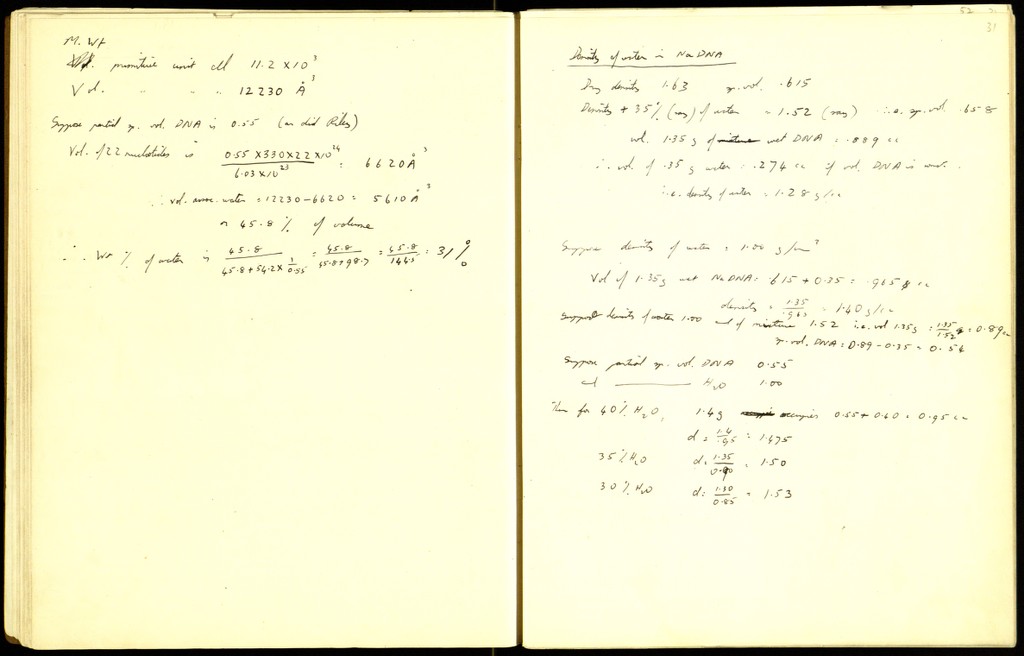 M. Wt
primitive unit cell 11.2 X 10³
Vol. " " " 12230 Å³
Suppose partial sp. vol. DNA is 0.55 (as did Riley)
Vol. of 22 nucleotides is 0.55 X 330 X 22 X 10²⁴ / 6.03 X 10²³ = 6620 Å³
∴ vol. assoc. water = 12230 – 6620 = 5610 Å³
or 45.8 % of volume
∴ Wt % of water is 45.8 / 45.8 + 54.2 X 1/0.55 = 45.8 / 45.8 + 98.7 = 45.8 / 144.5 = 31 %
31
Density of water in NaDNA
Dry density 1.63 sp. vol. .615
Density + 35% (say) of water = 1.52 (say) i.e. sp. vol. .658
vol. 1.35 g of wet DNA = .889 cc
∴ vol of .35 g water = .274 cc if vol. DNA is const.
i.e. density of water = 1.28 g/cc
Suppose density of water = 1.00 g/cm³
Vol of 1.35g wet NaDNA = .615 + 0.35 = .965 cc
density = 1.35 / .965 = 1.40 g/cc
Suppose density of water 1.00 and of mixture 1.52 i.e. vol 1.35g = 1.35 / 1.52 = 0.89 cc
sp. vol. DNA = 0.89 – 0.35 = 0.54
Suppose partial sp. vol. DNA 0.55
and ——— H₂O 1.00
Then for 40% H₂O, 1.4g occupies 0.55 + 0.40 = 0.95 cc
d = 1.4 / .95 = 1.475
35% H₂O d = 1.35 / 0.90 = 1.50
30% H₂O d = 1.30 / 0.85 = 1.53